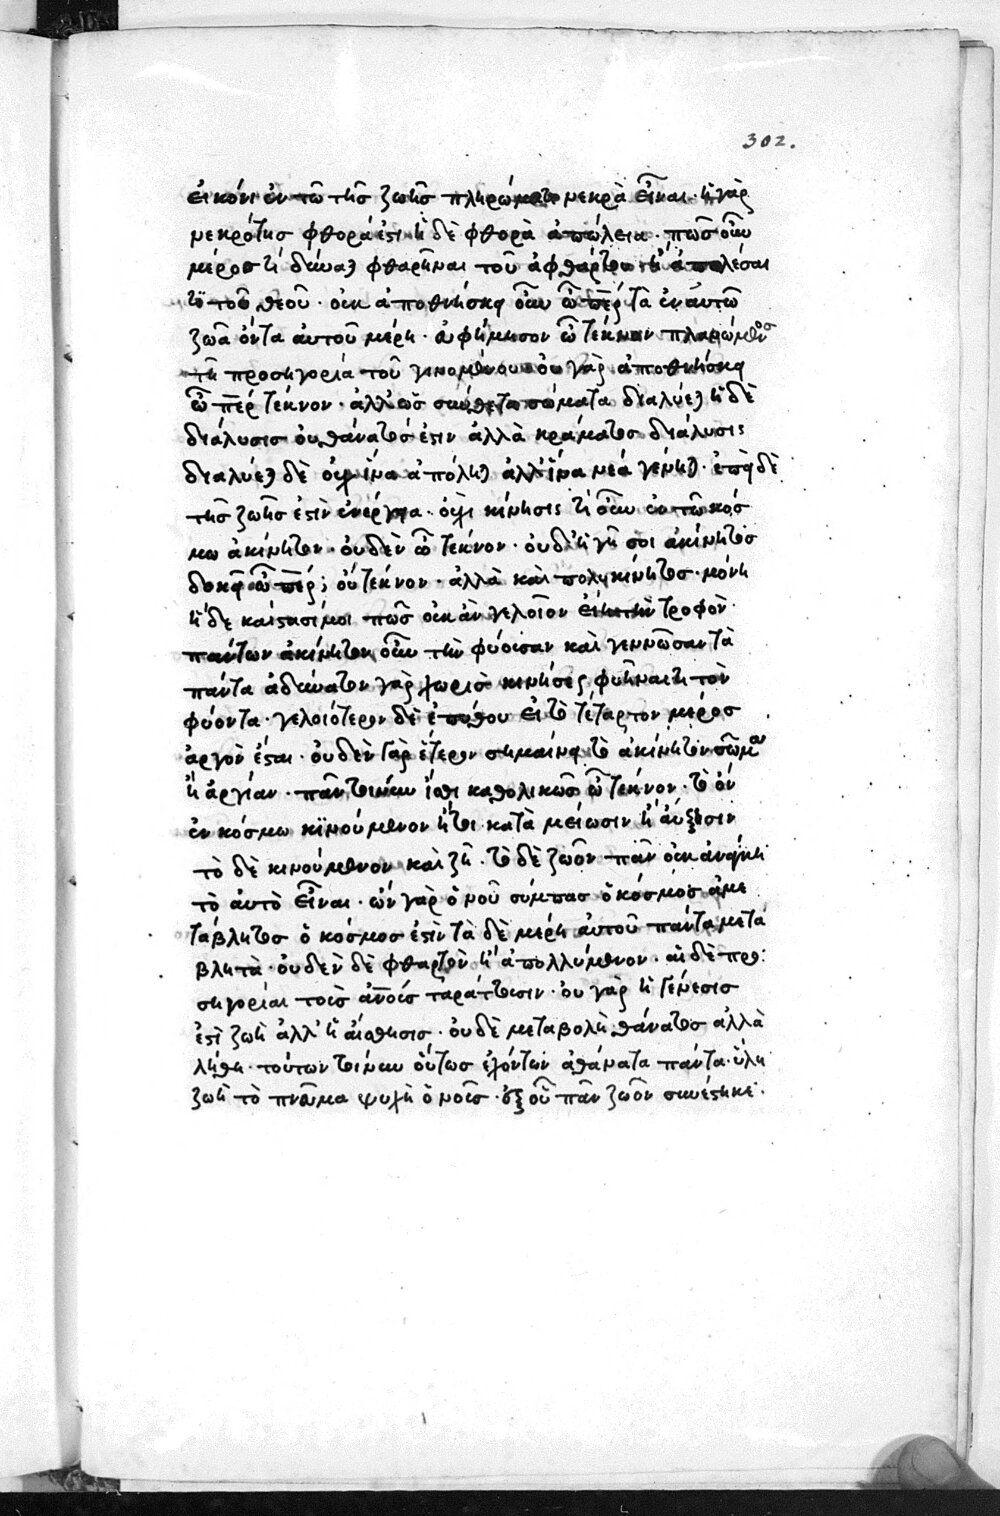 302.
εἰκόνι ἐν τῶ τῆς ζωῆς πληρώματι νεκρὰ εἶναι· ἡ γὰρ
νεκρότης φθορά ἐστι ἡ δὲ φθορὰ ἀπώλεια· πῶς οὖν
μέρος τί δύναται φθαρῆναι τοῦ ἀφθάρτου ἢ ἀπολέσαι
τὶ τοῦ θεοῦ· οὐκ ἀποθνήσκει οὖν ὦ περ τὰ ἐν αὐτῶ
ζῶα ὄντα αὐτοῦ μέρη· εὐφήμησον ὦ τέκνον πλανώμενος
τῆ προσηγορία τοῦ γινομένου οὐ γὰρ ἀποθνήσκει
ὦ περ τέκνον· ἀλλ' ὡς σύνθετα σώματα διαλύεται ἡ δὲ
διάλυσις οὐ θάνατός ἐστιν ἀλλὰ κράματος διάλυσις
διαλύεται δὲ οὐχ ἵνα ἀπόληται ἀλλ' ἵνα νεά γένηται· ἐπεὶ δὲ
τῆς ζωῆς ἐστὶν ἐνέργεια· οὐχὶ κίνησις τί οὖν ἐν τῶ κόσ
μω ἀκίνητον· οὐδὲν ὦ τέκνον· οὐδ' ἡ γῆ σοι ἀκίνητος
δοκεῖ ὦ περ; οὐ τέκνον· ἀλλὰ καὶ πολυκίνητος· μόνη
ἡ δε καὶ στασίμοι πῶς οὐκ ἂν γελοῖον εἴη τὴν τροφὸν
πάντων ἀκίνητον οὖν τὴν φύουσαν καὶ γεννῶσαν τὰ
πάντα ἀδύνατον γὰρ χωρὶς κινήσεως φυῆναι τι τὸν
φύοντα· γελοιότερον δὲ ἐπύθου εἰ τὸ τέταρτον μέρος
ἀργὸν ἔσται· οὐδὲν γὰρ ἕτερον σημαίνει τὸ ἀκίνητον σῶμα
ἢ ἀργίαν· πᾶν τοίνυν ἴσθι καθολικῶς ὦ τέκνον· τὸ ὂν
ἐν κόσμω κϊνούμενον ἤτοι κατὰ μείωσιν ἢ αὔξησιν
τὸ δὲ κινούμενον καὶ ζῆ· τὸ δὲ ζῶον πᾶν οὐκ ἀνάγκη
τὸ αὐτὸ εἶναι· ὢν γὰρ ὁ νοῦ σύμπας ὁ κόσμος ἀμε
τάβλητος ὁ κόσμος ἐστὶν τὰ δὲ μέρη αὐτοῦ πάντα μετα
βλητὰ· οὐδεν δὲ φθαρτὸν ἢ ἀπολλύμενον· αἱ δὲ προ:
σηγορίαι τοὶς ἀνοῖς ταράττουσιν· οὐ γὰρ ἡ γένεσις
ἐστὶ ζωὴ ἀλλ' ἡ αἴσθησις· οὐδὲ μεταβολὴ θάνατος ἀλλὰ
λήθη· τούτων τοίνυν οὕτως ἐχόντων ἀθάνατα πάντα· ὕλη
ζωὴ τὸ πνεῦμα ψυχὴ ὁ νοῦς· ἐξ οὗ πᾶν ζῶον συνέστηκε·